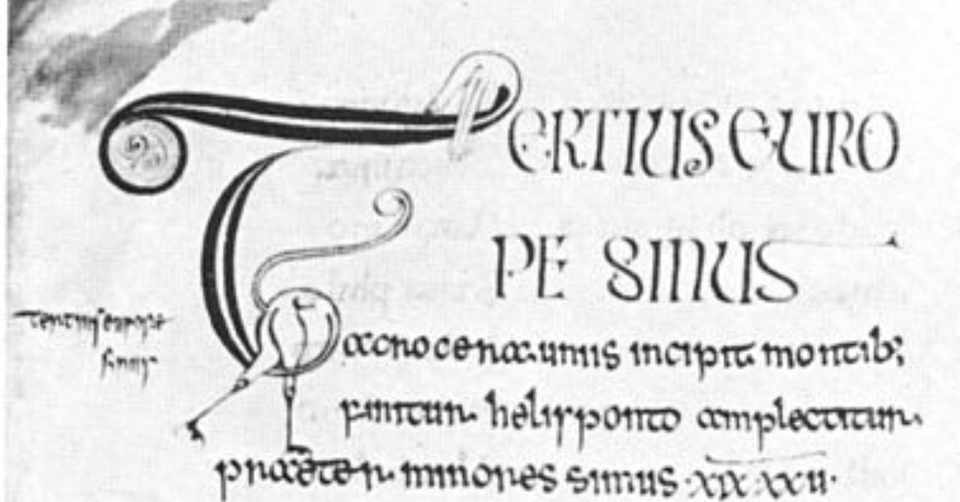 TERTIUS EURO
PE SINUS
tertius europe
sinus
acroceraunis incipit montib;
finitur. helisponto amplectitur.
praeter. minores sinus ·xix·xxu·